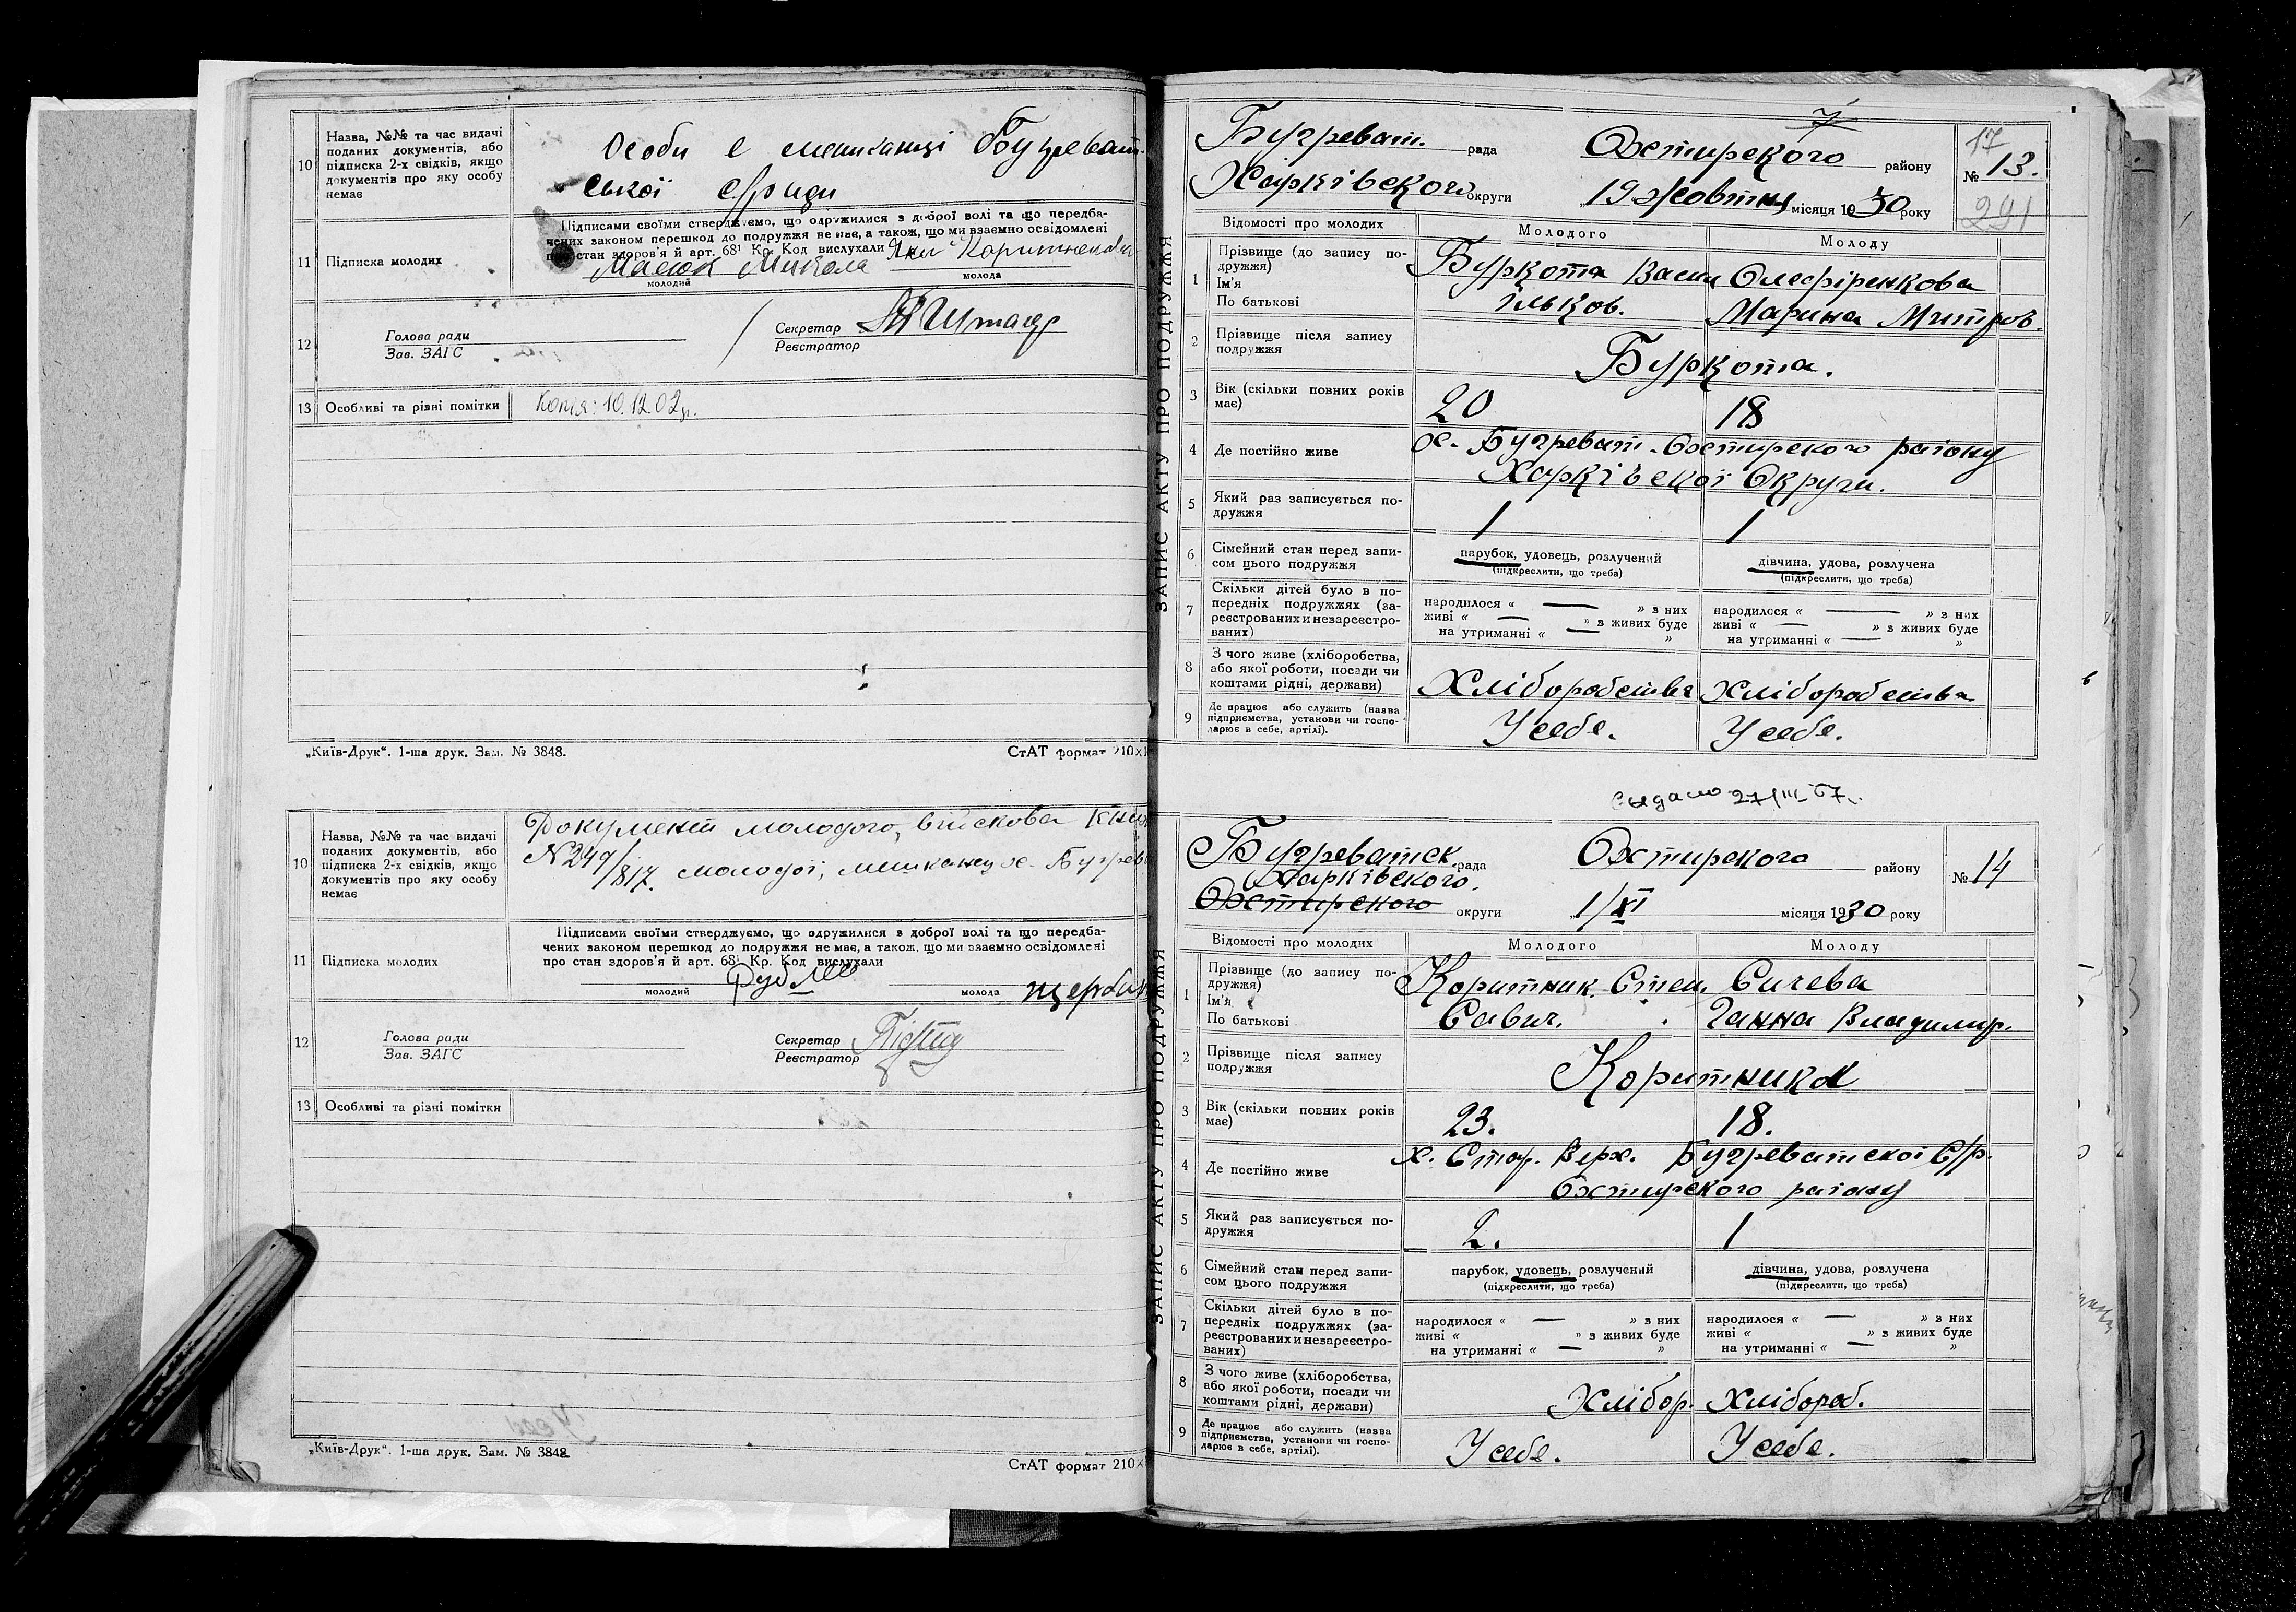 10 Назва, №№ та час видачі
поданих документів, або
підписка 2-х свідків, якщо
документів про яку особу
немає
Особи є мешканці Бугреват-
ської с/ради
11 Підписка молодих
Підписами своїми стверджуємо, що одружилися з доброї волі та що передба-
чених законом перешкод до подружжя не має, а також, що ми взаємно освідомлені
про стан здоров'я й арт. 68¹ Кр. Код вислухали
Масюк Микола
молодий
молода
12 Голова ради
Зав. ЗАГС
Секретар
Реєстратор
13 Особливі та різні помітки
Копія 10.12.02р.
„Київ-Друк“. 1-ша друк. Зам. № 3848.
СтАТ формат 210×
10 Назва, №№ та час видачі
поданих документів, або
підписка 2-х свідків, якщо
документів про яку особу
немає
Документ молодого, війскова
N 249/817. молодої, мешканец х. Бугрев
11 Підписка молодих
Підписами своїми стверджуємо, що одружилися з доброї волі та що передба-
чених законом перешкод до подружжя не має, а також, що ми взаємно освідомлені
про стан здоров'я й арт. 68¹ Кр. Код вислухали
молодий
молода
12 Голова ради
Зав. ЗАГС
Секретар
Реєстратор
13 Особливі та різні помітки
„Київ-Друк“. 1-ша друк. Зам. № 3848
СтАТ формат 210×
ЗАПИС АКТУ ПРО ПОДРУЖЖЯ
Бугреват. рада Охтирского району
17
№ 13.
Харківского округи „19 жовтня місяця 1930 року
291
Відомості про молодих
Молодого
Молоду
1 Прізвище (до запису по-
дружжя)
Ім'я
По батькові
Буркота Васил
Ільков.
Олефіренкова
Марина Митров.
2 Прізвище після запису
подружжя
Буркота.
3 Вік (скільки повних років
має)
20
18
4 Де постійно живе
х. Бугреват. Охтирского району
Харківскої Округи.
5 Який раз записується по-
дружжя
1
1
6 Сімейний стан перед запи-
сом цього подружжя
парубок, удовець, розлучений
(підкреслити, що треба)
дівчина, удова, розлучена
(підкреслити, що треба)
7 Скільки дітей було в по-
передніх подружжях (за-
реєстрованих и незареєстро-
ваних)
народилося « — » з них
живі « — » з живих буде
на утриманні « — »
народилося « — » з них
живі « — » з живих буде
на утриманні « — »
8 З чого живе (хліборобства,
або якої роботи, посади чи
коштами рідні, держави)
Хліборобства
хліборобства
9 Де працює або служить (назва
підприємства, установи чи госпо-
дарює в себе, артілі).
У себе.
У себе.
ЗАПИС АКТУ ПРО ПОДРУЖЖЯ
Бугреватск. рада Охтирского району
№ 14
Харківского.
Охтирского округи „1/XI місяця 1930 року
Відомості про молодих
Молодого
Молоду
1 Прізвище (до запису по-
дружжя)
Ім'я
По батькові
Коритник Степ.
Савич.
Сичева
Ганна Владимир.
2 Прізвище після запису
подружжя
Коритника
3 Вік (скільки повних років
має)
23.
18.
4 Де постійно живе
х. Стар. Верх. Бугреватскої С/р.
Охтирского району
5 Який раз записується по-
дружжя
2.
1
6 Сімейний стан перед запи-
сом цього подружжя
парубок, удовець, розлучений
(підкреслити, що треба)
дівчина, удова, розлучена
(підкреслити, що треба)
7 Скільки дітей було в по-
передніх подружжях (за-
реєстрованих и незареєстро-
ваних)
народилося « — » з них
живі « » з живих буде
на утриманні « — »
народилося « — » з них
живі « » з живих буде
на утриманні « — »
8 З чого живе (хліборобства,
або якої роботи, посади чи
коштами рідні, держави)
Хлібор.
Хлібороб.
9 Де працює або служить (назва
підприємства, установи чи госпо-
дарює в себе, артілі).
У себе.
У себе.